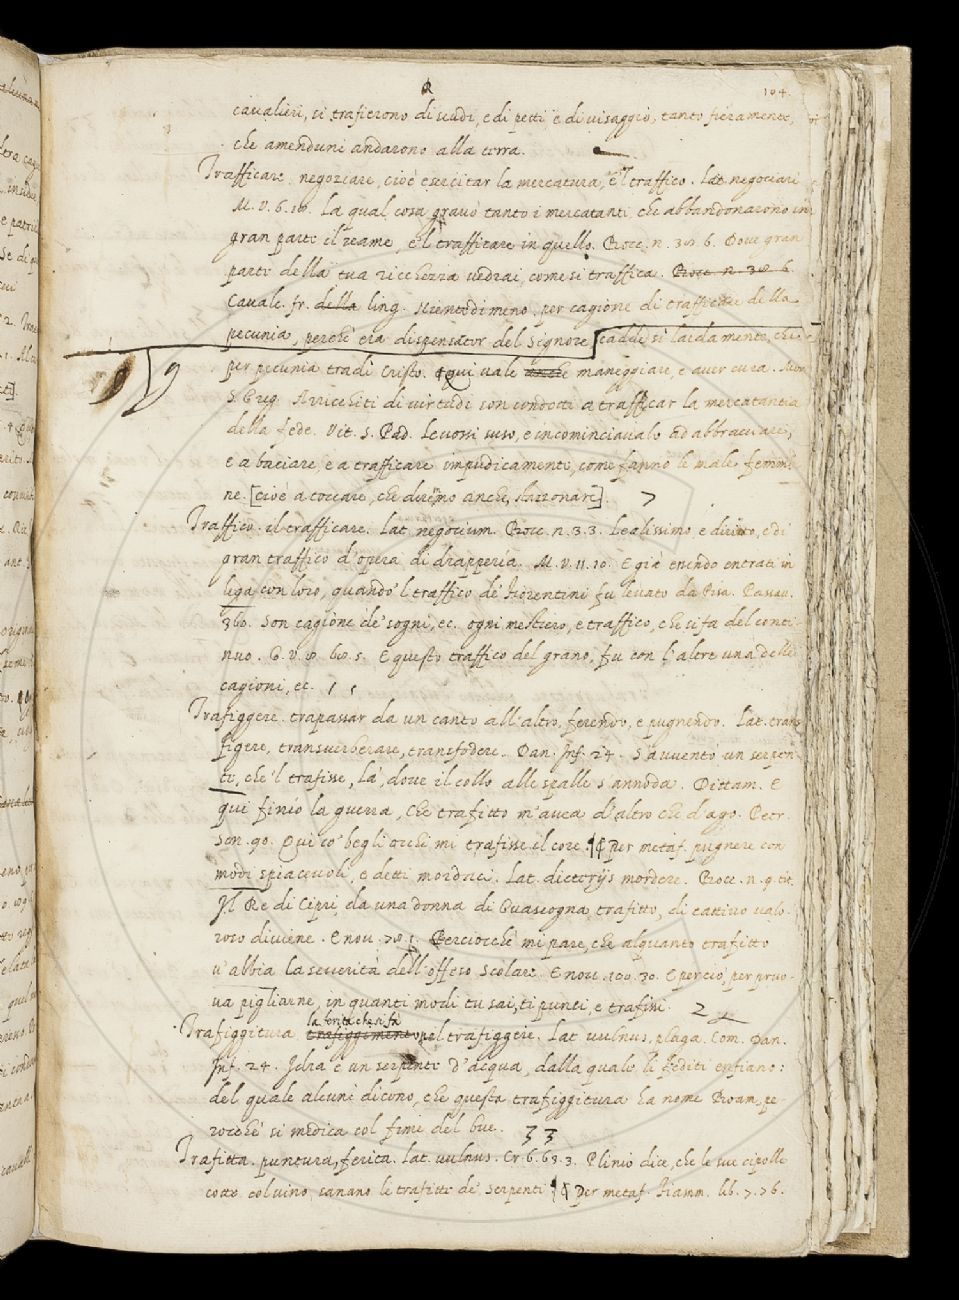 R
104.
cavalieri, si trafierono di scudi, e di petti e di visaggio, tanto fieramente,
che amenduni andarono alla terra.
Trafficare. negoziare, cioè esercitar la mercatura, e 'l traffico. Lat. negociari
M. V. 6. 10. La qual cosa gravò tanto i mercatanti, che abbandonarono in
gran parte il reame, e 'l trafficare in quello. Bocc. n. 38. 6. Dove gran
parte della tua ricchezza vedrai, come si traffica. Bocc. n. 38. 6.
Cavalc. fr. della ling. Nientedimeno, per cagione di trafficare della
pecunia, perchè era dispensator del Signore cadde sì laidamente, che
per pecunia tradì Cristo. qui vale maneggiare, e aver cura. Mor.
S. Greg. Arricchiti di virtudi son condotti a trafficar la mercatantia
della fede. Vit. S. Pad. Levossi suso, e incominciavalo ad abbracciare,
e a baciare, e a trafficare impudicamente, come fanno le male femmi-
ne. [cioè a toccare, che diremo anche, stazzonare].
Traffico. il trafficare. Lat. negocium. Bocc. n. 3. 3. Lealissimo, e diritto, e di
gran traffico d'opera di drapperia. M. V. 11. 10. E già essendo entrati in
lega con loro, quando 'l traffico de' Fiorentini fu levato da Pisa. Passav.
360. Son cagione de' sogni, ec. ogni mestiero, e traffico, che si fa del conti-
nuo. G. V. 8. 68. 5. E questo traffico del grano, fu con l'altre una delle
cagioni, ec.
Trafiggere. trapassar da un canto all'altro, ferendo, e pugnendo. Lat. trans-
figere, transverberare, transfodere. Dan. Inf. 24. S'avventò un serpen-
te, che 'l trafisse, Là, dove il collo alle spalle s'annoda. Dittam. E
qui finìo la guerra, Che trafitto m'avea d'altro che d'ago. Petr.
Son. 90. Qui co' begli occhi mi trafisse il core. ¶ Per metaf. pugnere con
modi spiacevoli, e detti mordaci. Lat. dicterijs mordere. Bocc. n. 9. tit.
Il Re di Cipri da una donna di Guascogna trafitto, di cattivo valo-
roso diviene. E nov. 78. Perciocchè mi pare, che alquanto trafitto
v'abbia la severità dell'offeso Scolare. E nov. 100. 30. E perciò, per pruo-
va pigliarne, in quanti modi tu sai, ti punsi, e trafissi.
la ferita che si fa
Trafiggitura. trafiggimento, nel trafiggere. Lat. vulnus, plaga. Com. Dan.
Inf. 24. Idra è un serpente d'acqua, dalla quale li fediti enfiano:
del quale alcuni dicono, che questa trafiggitura ha nome Boam, pe-
rocchè si medica col fime del bue. 33
Trafitta. puntura, ferita. Lat. vulnus. Cr. 6. 63. 3. Plinio dice, che le sue cipolle
cotte col vino, sanano le trafitte de' Serpenti ¶ Per metaf. Fiamm. lib. 7. 76.